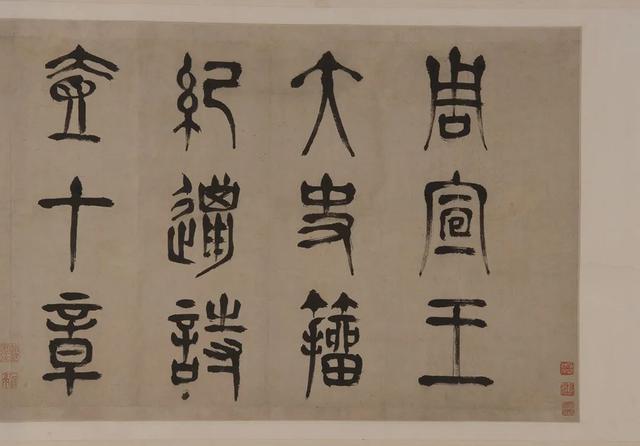 周宣王
大史籀
紀邋詩
壹十章